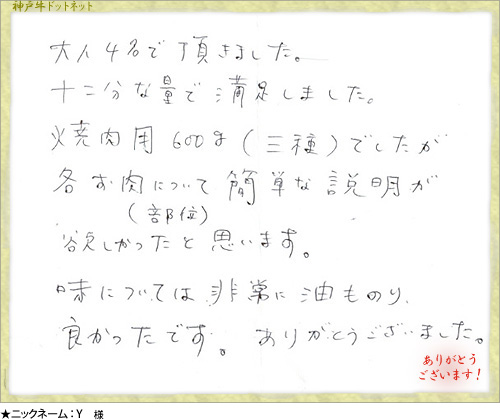 神戸牛ドットネット
大人4名で頂きました。
十二分な量で満足しました。
焼肉用600g(三種)でしたが
各お肉について簡単な説明が
(部位)
欲しかったと思います。
味については非常に油ものり、
良かったです。ありがとうございました。
ありがとう
ございます!
★ニックネーム:Y 様